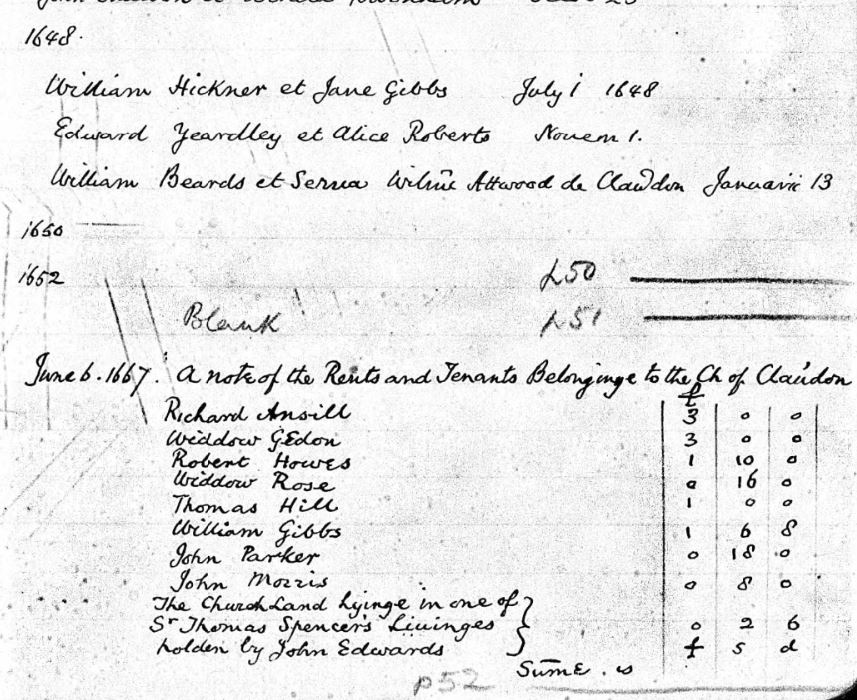 1648.
William Hickner et Jane Gibbs July 1 1648
Edward Yeardley et Alice Roberts Nouem 1.
William Beards et Serua Attwood de Clavdon Januarii 13
1650
1652 £50
Blank £51
June 6. 1667. A note of the Rents and Tenants Belonginge to the Ch of Claudon
£
Richard Ansill 3 0 0
Widdow GEdon 3 0 0
Robert Howes 1 10 0
Widdow Rose 0 16 0
Thomas Hill 1 0 0
William Gibbs 1 6 8
John Parker 0 18 0
John Morris 0 8 0
The Church Land lyinge in one of
Sr Thomas Spencers Liuinges 0 2 6
holden by John Edwards £ s d
Sume . is
p52